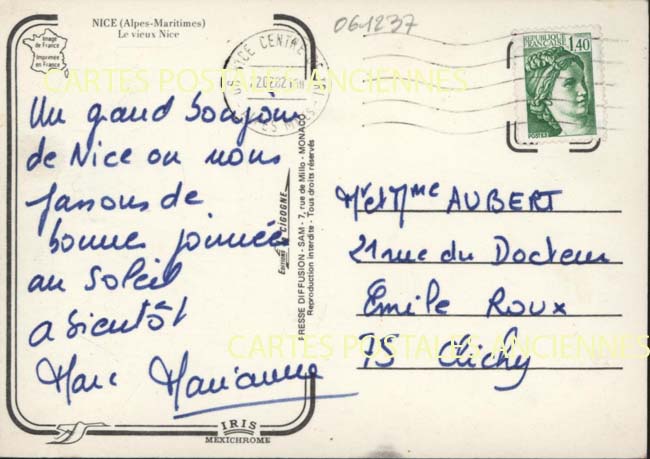 NICE (Alpes-Maritimes)
Le vieux Nice
Image
de France
Imprimée
en France
061237
REPUBLIQUE
FRANCAISE
1,40
POSTES
CARTES POSTALES ANCIENNES
Un grand bonjour
de Nice ou nous
passons de
bonnes journées
au soleil
a bientôt
Marc Marianne
Editions LA CIGOGNE
PRESSE DIFFUSION - SAM - 7, rue de Millo - MONACO
Reproduction interdite - Tous droits réservés
Mr et Mme AUBERT
21 rue du Docteur
Emile Roux
Clichy
CARTES POSTALES ANCIENNES
IRIS
MEXICHROME